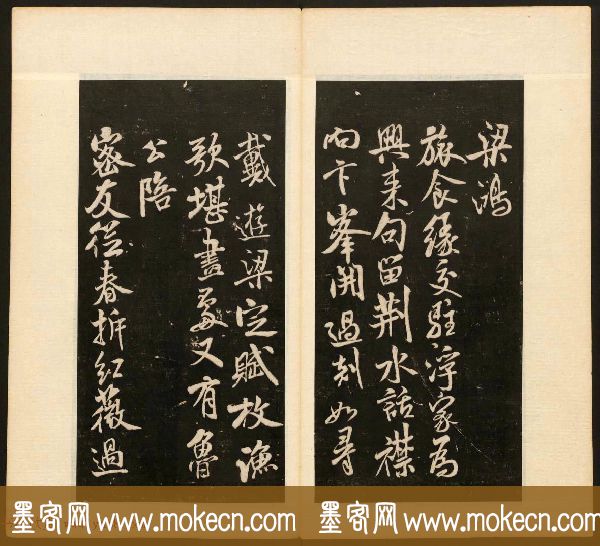 梁鴻
旅食緣交駐浮家為
興来句留荆水話襟
向卞峯開過剡如尋
戴遊梁定賦放漁
歌堪畫處又有魯
公陪
密友從春拆紅薇過
墨客网 www.mokecn.com 墨客网 www.mokecn.com